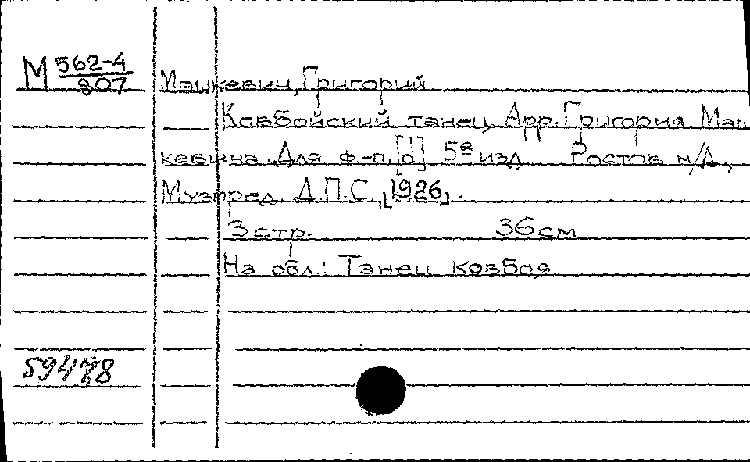 М 562-4
807
Мацкевич, Григорий
Ковбойский танец. Арр. Григория Мац
кевича. Для ф-п. [о] 5е изд. Ростов н/Д.,
Музпред. Д.П.С., [1926].
3 стр. 36 см
На обл.: Танец ковбоя
59478